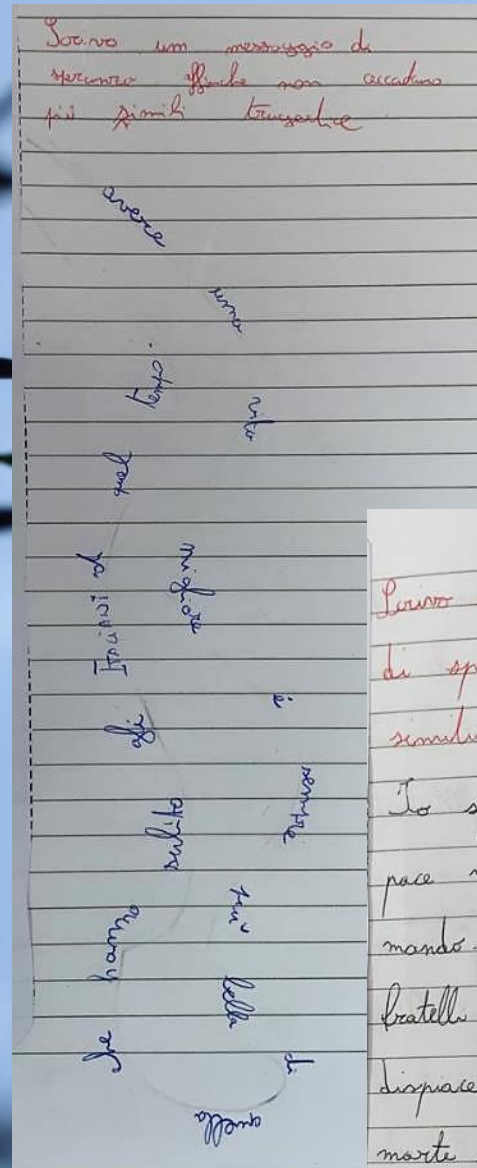 Scrivo un messaggio di
speranza affinche non accadano
più simili
avere
una
vita
migliore
è
sempre
più
bella
di
quella
che
hanno
subito
gli
ITALIANI da
Scrivo
di sp
simili
Io s
pace
mando.
fratelli
dispiace
morte